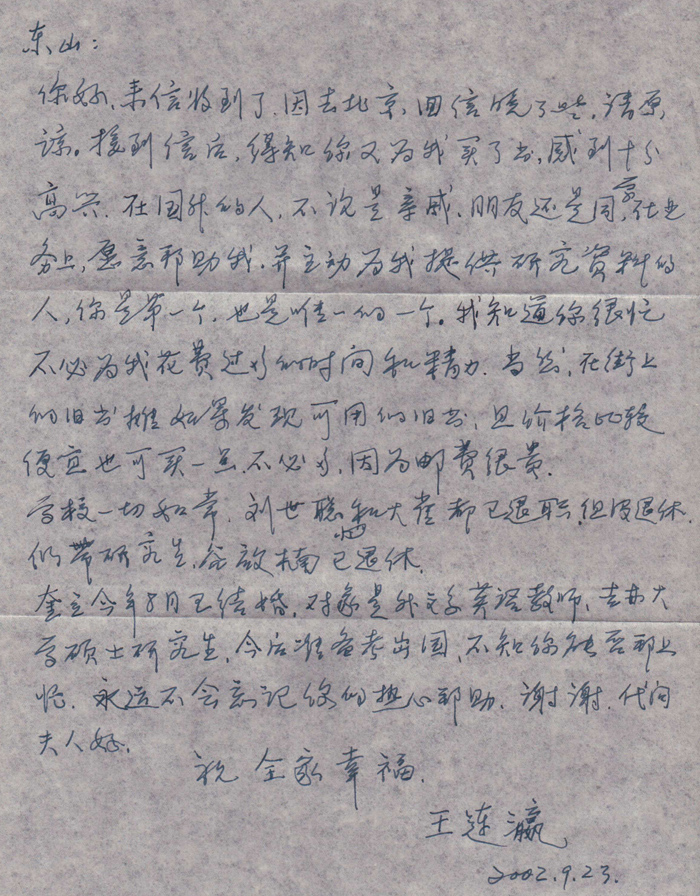 东山：
你好，来信收到了，因去北京，回信晚了些，请原
谅。接到信后，得知你又为我买了书，感到十分
高兴。在国外的人，不说是亲戚、朋友还是同学，在业
务上，愿意邦助我，并主动为我提供研究资料的
人，你是第一个，也是唯一的一个。我知道你很忙
不必为我花费过多的时间和精力。当然，在街上
的旧书摊如果发现可用的旧书，且价格比较
便宜也可买一点，不必多，因为邮费很贵。
学校一切如常，刘世聪和大崔都已退职，但没退休，
仍带研究生，谷启楠已退休。
奎立今年8月已结婚，对象是外文学英语教师，吉林大
学硕士研究生，今后准备考出国，不知你能否邦上
忙。永远不会忘记你的热心邦助。谢谢。代问
夫人好。
祝 全家幸福。
王连瀛
2002.9.23.